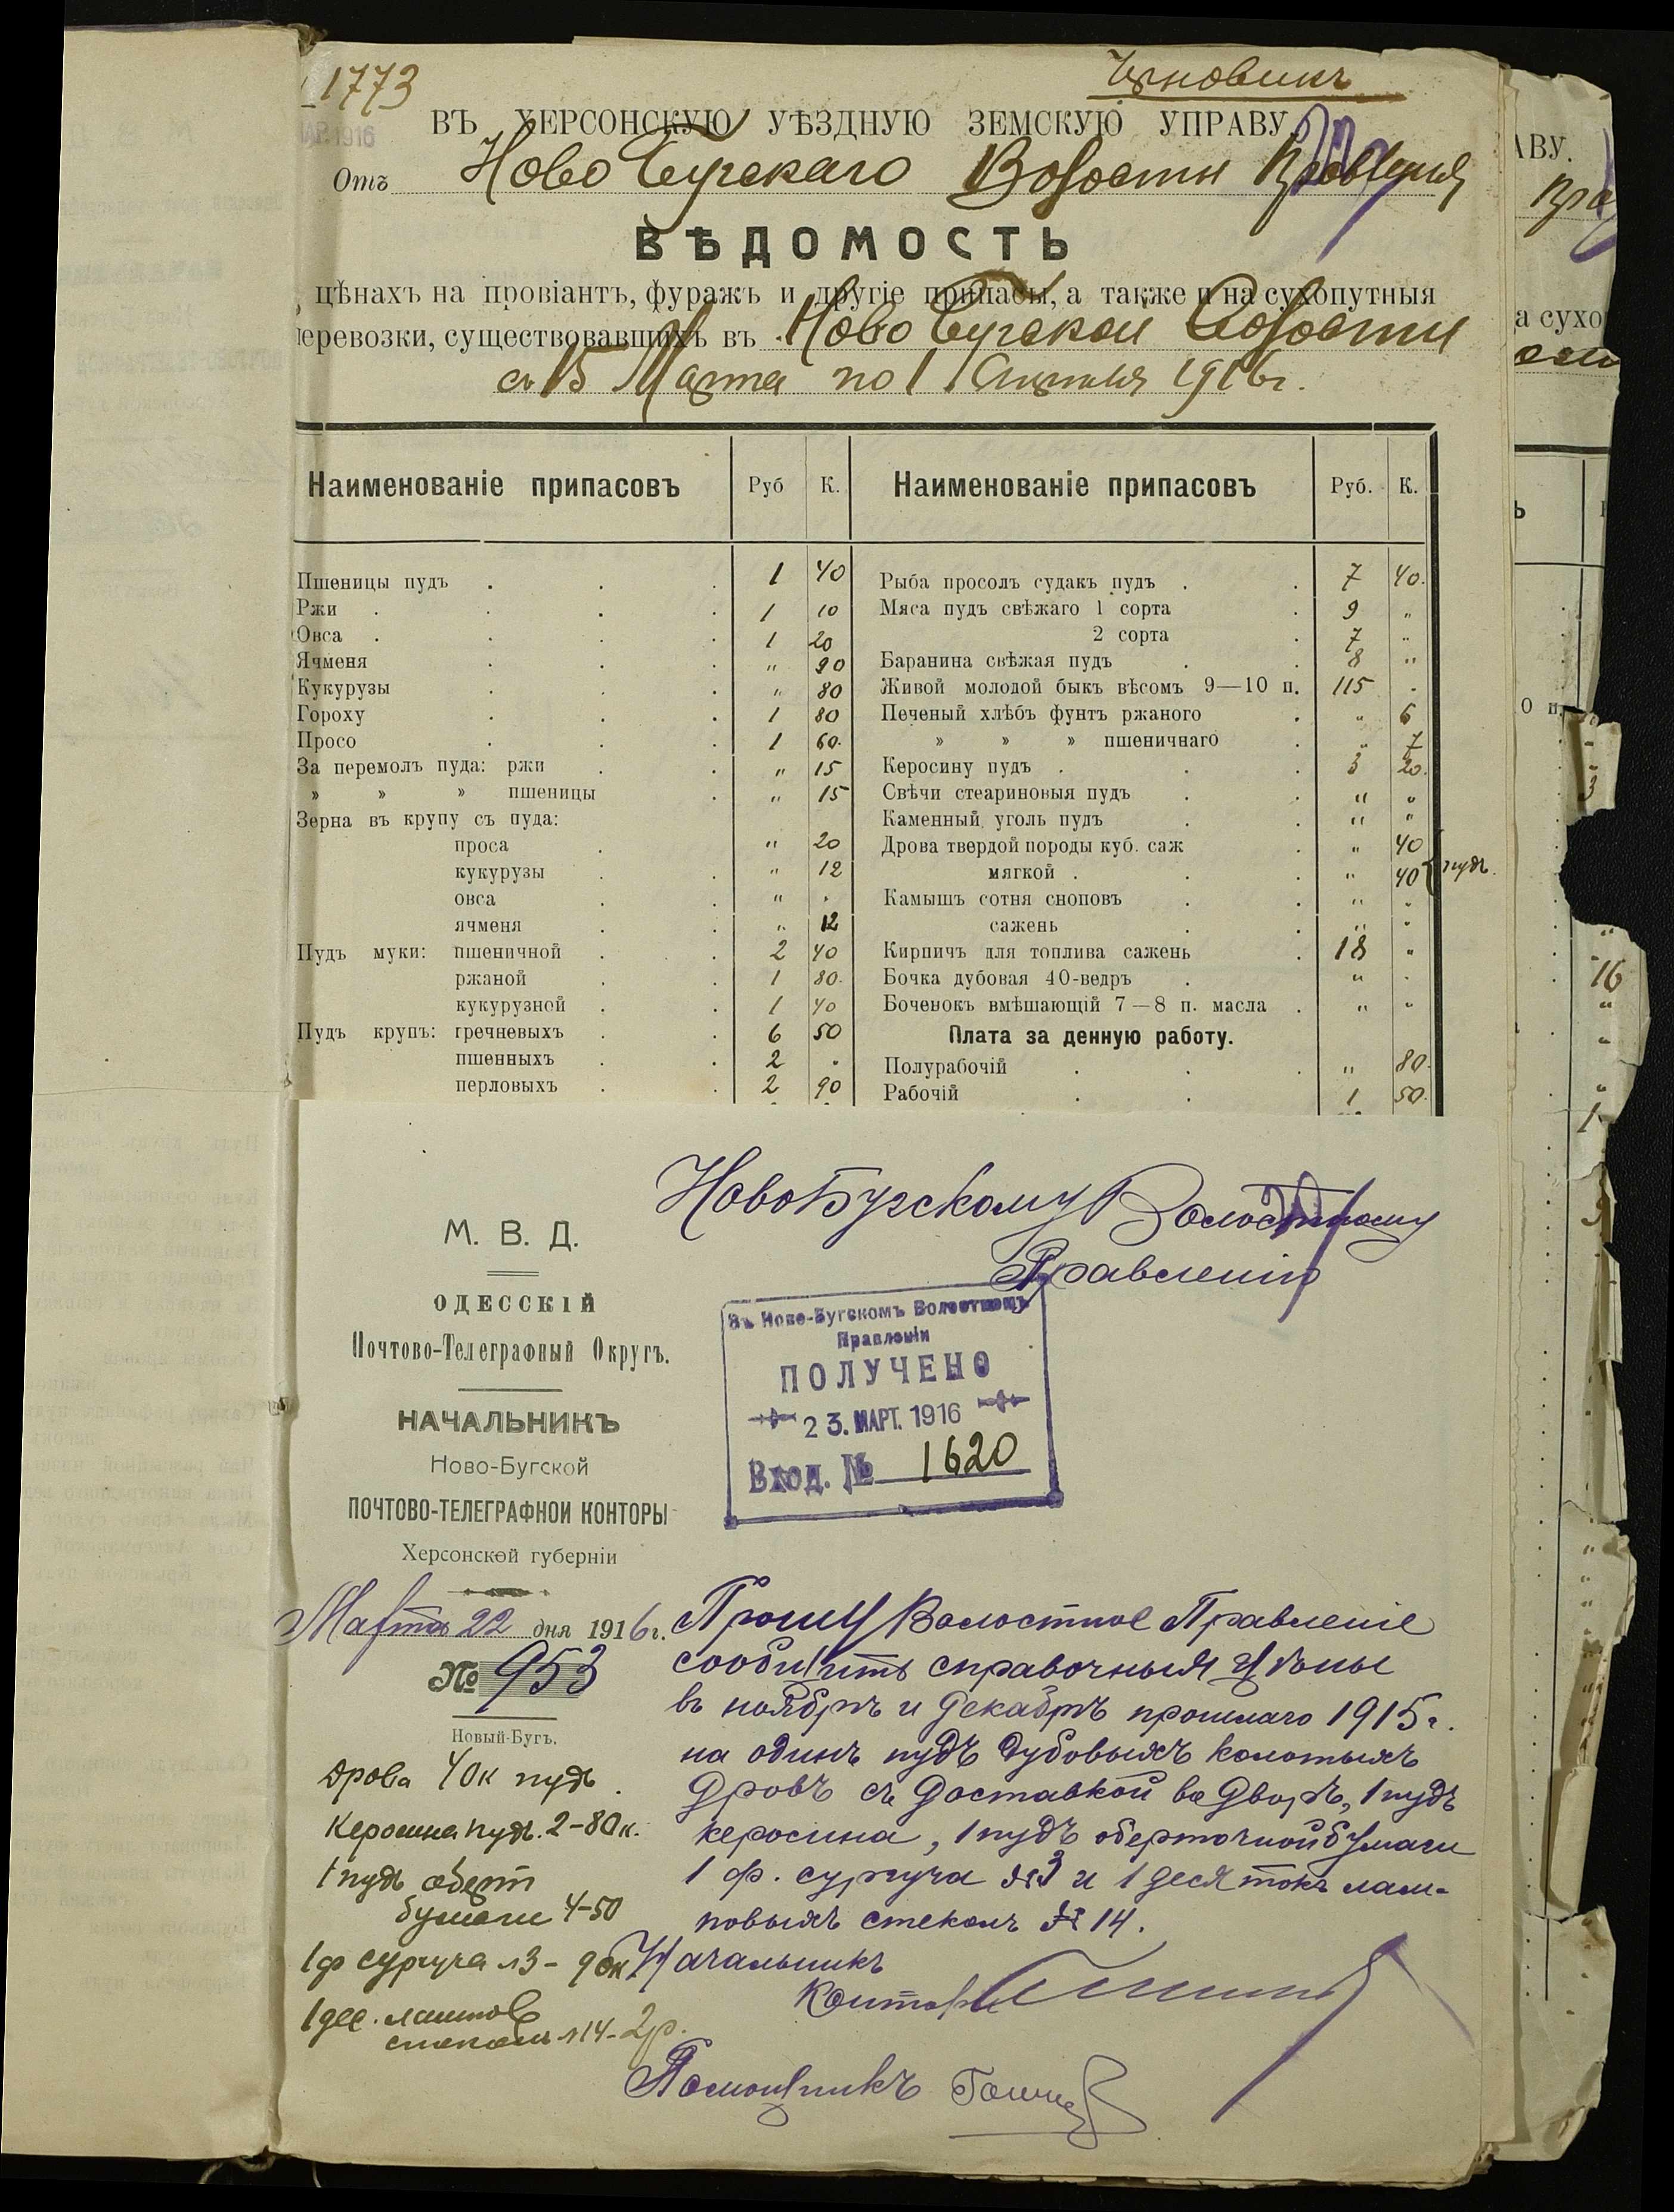 1773
Черновикъ
ВЪ ХЕРСОНСКУЮ УѢЗДНУЮ ЗЕМСКУЮ УПРАВУ.
Отъ Ново Бугскаго Волостн Правленія
ВѢДОМОСТЬ
цѣнахъ на провіантъ, фуражъ и другіе припасы, а также и на сухопутныя
перевозки, существовавшихъ въ Ново Бугской Волости
съ 15 Марта по 1 Апрѣля 1916 г.
Наименованіе припасовъ Руб К. Наименованіе припасовъ Руб. К.
Пшеницы пудъ . . . 1 40 Рыба просолъ судакъ пудъ . . 7 40.
Ржи . . . . 1 10 Мяса пудъ свѣжаго 1 сорта . 9 „
Овса . . . . 1 20 2 сорта . 7 „
Ячменя . . . „ 90 Баранина свѣжая пудъ . . 8 „
Кукурузы . . . „ 80 Живой молодой быкъ вѣсомъ 9—10 п. 115 .
Гороху . . . 1 80 Печеный хлѣбъ фунтъ ржаного . „ 6
Просо . . . 1 60. » » » пшеничнаго . „ 7
За перемолъ пуда: ржи . . „ 15 Керосину пудъ . . . 3 20.
» » » пшеницы . „ 15 Свѣчи стеариновыя пудъ . . „ „
Зерна въ крупу съ пуда: Каменный уголь пудъ . . „ „
проса . „ 20 Дрова твердой породы куб. саж . „ 40
кукурузы . . „ 12 мягкой . . . „ 40 } пудъ.
овса . . „ . Камышъ сотня сноповъ . . „ „
ячменя . . „ 12 сажень . . „ „
Пудъ муки: пшеничной . . 2 40 Кирпичъ для топлива сажень . 18 „
ржаной . . 1 80. Бочка дубовая 40-ведръ . „ .
кукурузной . . 1 40 Боченокъ вмѣщающій 7—8 п. масла . „ „
Пудъ крупъ: гречневыхъ . . 6 50 Плата за денную работу.
пшенныхъ . . 2 „ Полурабочій . . . „ 80.
перловыхъ . . 2 90 Рабочій . . 1 50.
НовоБугскому Волостному
Правленію
М. В. Д.
ОДЕССКІЙ
Почтово-Телеграфный Округъ.
НАЧАЛЬНИКЪ
Ново-Бугской
ПОЧТОВО-ТЕЛЕГРАФНОЙ КОНТОРЫ
Херсонской губерніи
Марта 22 дня 1916 г.
№ 953
Новый-Бугъ.
Въ Ново-Бугскомъ Волостномъ
Правленіи
ПОЛУЧЕНО
23. МАРТ. 1916
Вход. № 1620
Прошу Волостное Правленіе
сообщить справочныя цѣны
въ ноябрѣ и декабрѣ прошлаго 1915 г.
на одинъ пудъ дубовыхъ колотыхъ
дровъ съ доставкой во дворъ, 1 пудъ
керосина, 1 пудъ оберточной бумаги
1 ф. сургуча №3 и 1 десятокъ лам-
повыхъ стеколъ № 14.
Начальникъ
Конторы
Помощникъ
Дрова 40к пудъ.
Керосина пудъ. 2-80к.
1 пудъ оберт
бумаги 4-50
1ф сургуча №3 - 90к
1 дес. лампов
стеколъ №14- 2р.
АВУ.
а сухо